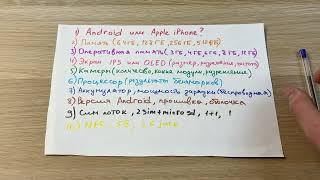 1) Android или Apple iPhone?
2) Память (64гб, 128гб, 256гб, 512гб)
3) Оперативная память (3гб, 4гб, 6гб, 8гб, 12гб)
4) Экран IPS или OLED (размер, разрешение, частота)
5) Камеры (количество, какие модули, разрешение)
6) Процессор (результат бенчмарков)
7) Аккумулятор, мощность зарядки (беспроводная)
8) Версия Android, прошивка, оболочка
9) Сим лоток, 2sim+microsd, 1+1, 1
10) NFC, 5G, 3.5 jack